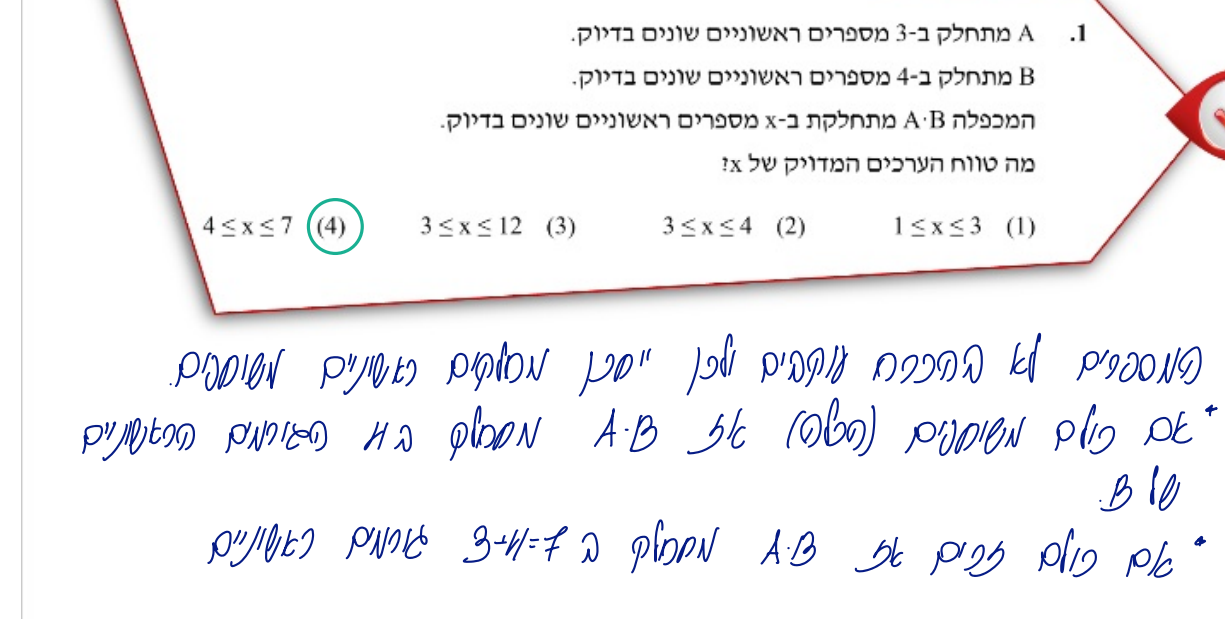 1. A מתחלק ב-3 מספרים ראשוניים שונים בדיוק.
B מתחלק ב-4 מספרים ראשוניים שונים בדיוק.
המכפלה A·B מתחלקת ב-x מספרים ראשוניים שונים בדיוק.
מה טווח הערכים המדויק של x?
(1) 1 ≤ x ≤ 3 (2) 3 ≤ x ≤ 4 (3) 3 ≤ x ≤ 12 (4) 4 ≤ x ≤ 7
המספרים לא בהכרח עוקבים ולכן ייתכנו מחלקים ראשוניים משותפים.
* אם כולם משותפים (הכלה) אז A·B מתחלק ב 4 הגורמים הראשוניים
של B.
* אם כולם זרים אז A·B מתחלק ב 3+4=7 גורמים ראשוניים